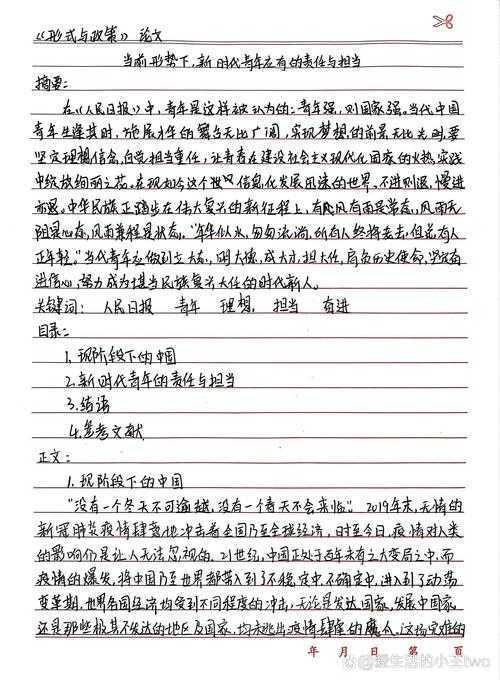 《形式与政策》论文
当前形势下,新时代青年应有的责任与担当
摘要:
在《人民日报》中,青年是这样被认为的:青年强,则国家强。当代中国
青年生逢其时,施展才华的舞台无比广阔,实现梦想的前景无比光明,要
坚定理想信念,自觉担当重任,让青春在建设社会主义现代化国家的火热实践
中绽放绚丽之花。在现如今这个世界信息化发展迅速的世界,不进则退,慢进
亦退。中华民族正踏步在伟大复兴的新征程上,有风有雨是常态,风雨无
阻是心态,风雨兼程是状态。"年年似水,匆匆流淌,所有人终将老去,但总有人
正年轻。"当代青年应做到立大志,明大德,成大才,担大任,肩负历史使命,坚定前
进信心,努力成为堪当民族复兴大任的时代新人。
关键词: 人民日报 青年 理想, 担当 奋进
目录:
1.现阶段下的中国
2.新时代青年的责任与担当
3.结语
4.参考文献
正文:
1.现阶段下的中国
"没有一个冬天不可逾越,没有一个春天不会来临"。2019年末,无情的
新冠肺炎疫情肆意地冲击着全国乃至全球经济,时至今日,疫情对人类
的影响仍是让人无法忽视的。21世纪,中国正处于百年未有之大变局之中,而
疫情的爆发,将中国乃至世界都带入到了不稳定中、不确定中,进入到了动荡
变革期,世界各国经济均受到不同程度的冲击,无论是发达国家,发展中国家,
还是那些极其不发达的地区及国家,均未逃出疫情肆虐的魔爪。这场灾难的
年 月 日 第 页
@爱生活的小王two